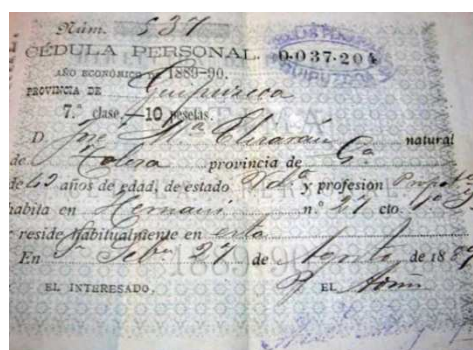 Núm. 537
CÉDULA PERSONAL. 0.037.204
GUIPUZCOA
AÑO ECONÓMICO DE 1889-90.
PROVINCIA DE Guipuzcoa
7.ª clase.—10 pesetas.
D. José Mª natural
de Tolosa provincia de Gª
de 42 años de edad, de estado y profesion
habita en Hernani n.º 27 cto. 1º
reside habitualmente en esta
En Sn Sebn 27 de Agosto de 188
1889-90
EL INTERESADO. EL